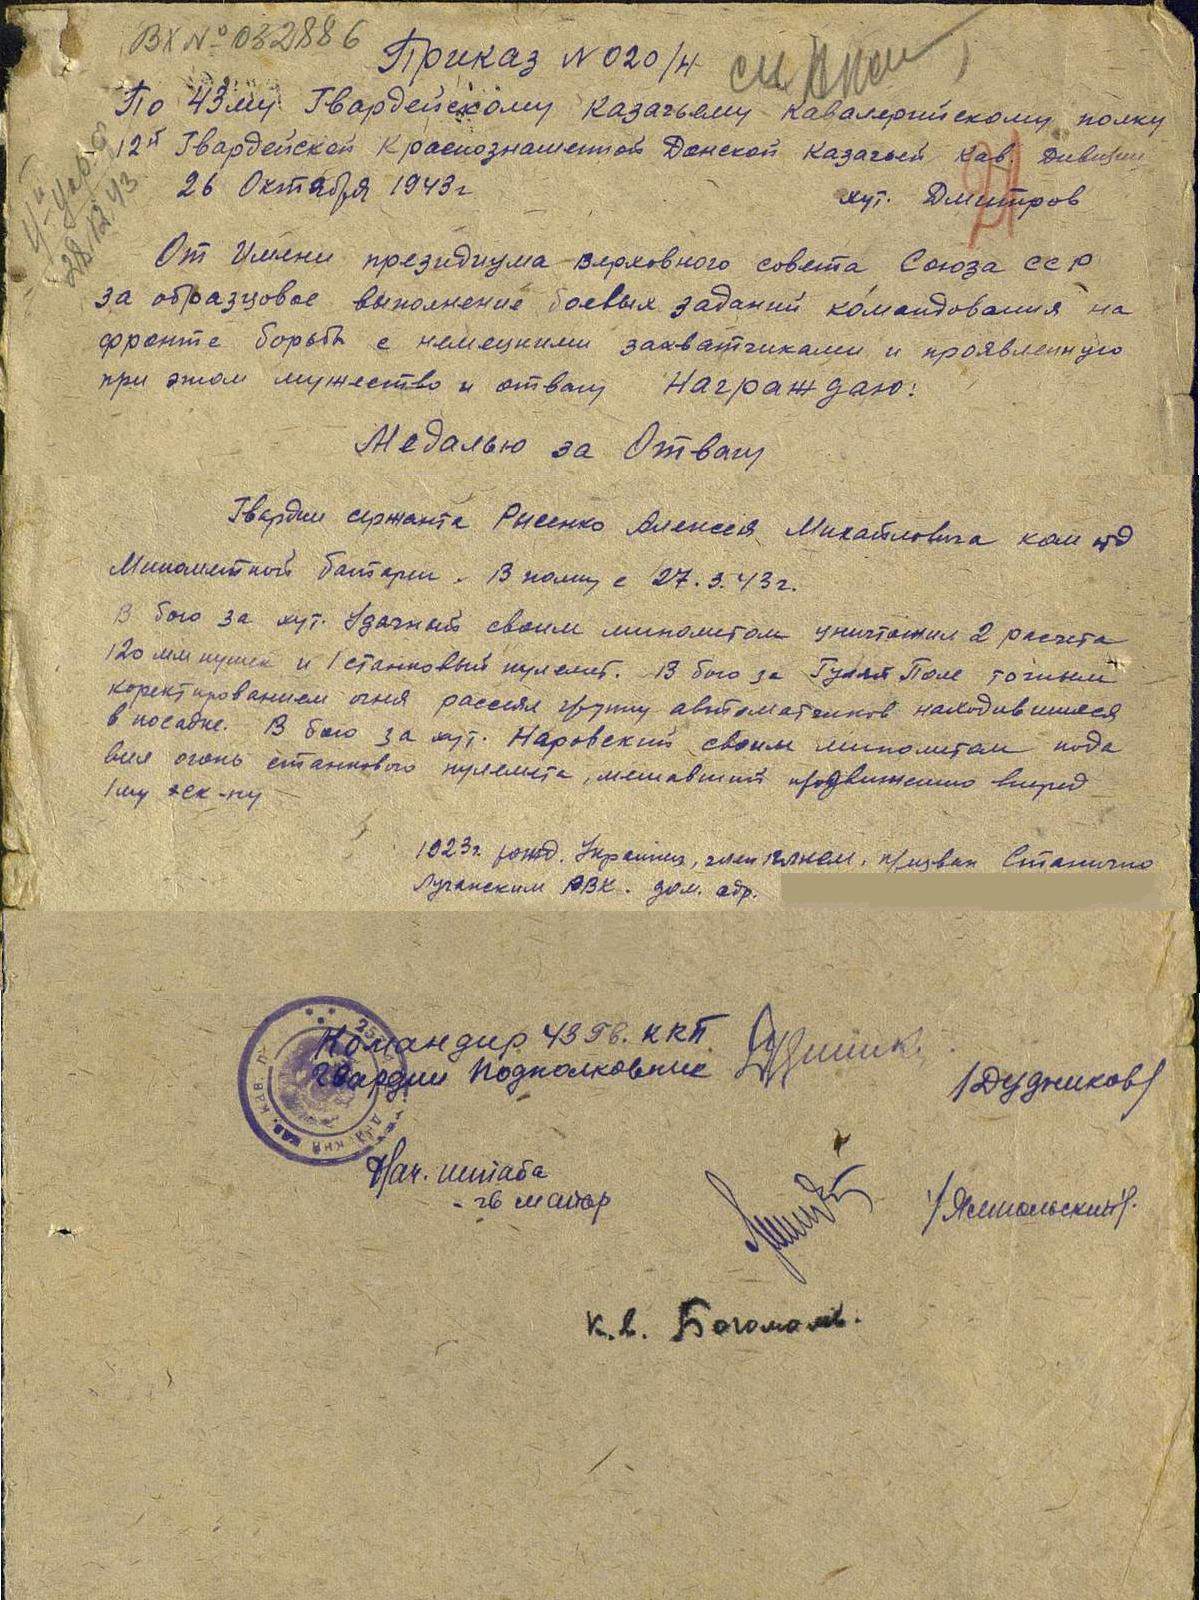 Вх № 032886
Приказ N 020/н
По 43му Гвардейскому Казачьему Кавалерийскому полку
12й Гвардейской Краснознаменной Донской Казачьей Кав. Дивизии
26 Октября 1943г
хут. Дмитров
21
28.12.43
От Имени президиума верховного совета Союза ССР
за образцовое выполнение боевых заданий командования на
фронте борьбы с немецкими захватчиками и проявленную
при этом мужество и отвагу Награждаю:
Медалью за Отвагу
Гвардии сержанта Рисенко Алексея Михайловича ком отд
Минометной батареи. В полку с 27.3.43г.
В бою за хут. Удачный своим минометом уничтожил 2 расчета
120 мм пушек и 1 станковый пулемет. В бою за Гуляй Поле точным
коректированием огня рассеял группу автоматчиков находившиеся
в посадке. В бою за хут. Наровский своим минометом пода
вил огонь станкового пулемета, мешавший продвижению вперед
1му эск-ну
1923г. рожд. Украинец, член ВЛКСМ, призван Станично
Луганским РВК. дом. адр.
Командир 43 Гв. ККП
Гвардии Подполковник
/Дудников/
Нач. штаба
- гв майор
/Ямпольский/.
К.в. Богомолов.